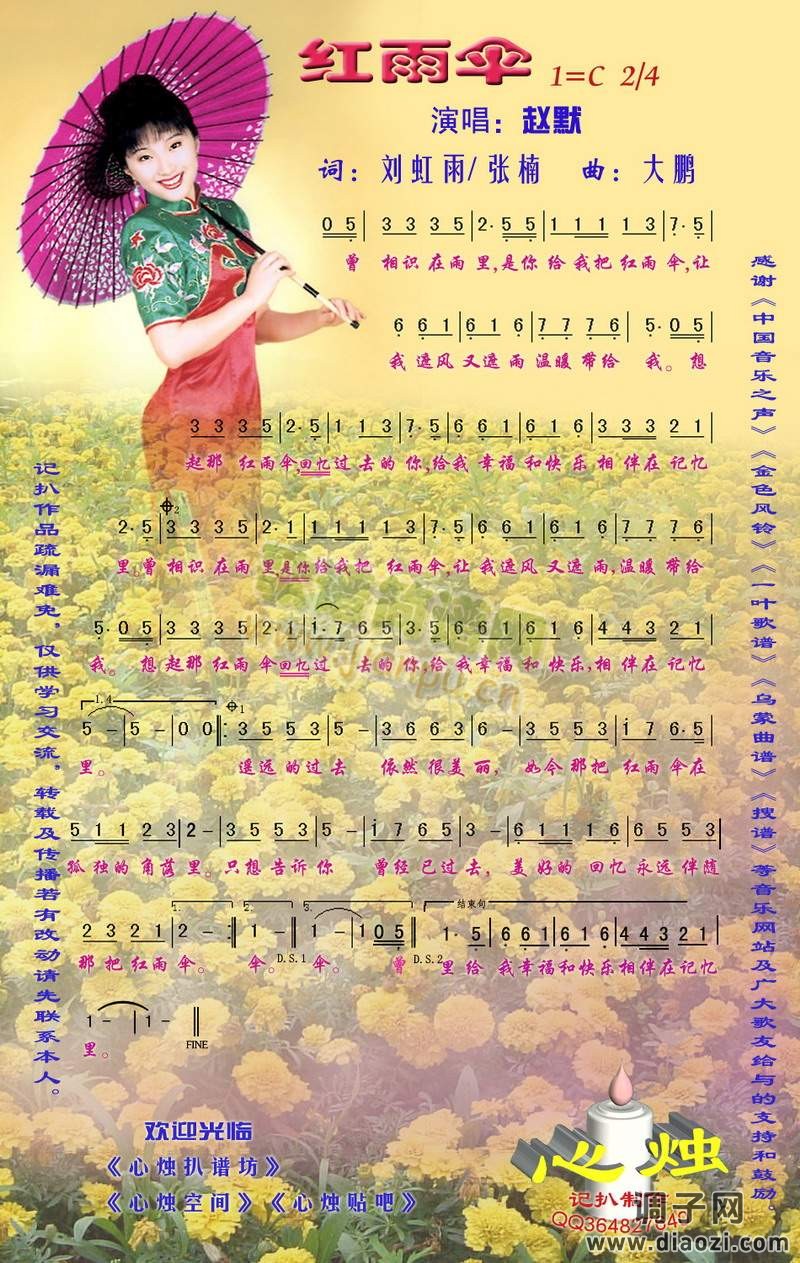 红雨伞 1=C 2/4
演唱：赵默
词：刘虹雨/张楠 曲：大鹏
0 5 | 3 3 3 5 | 2· 5 5 | 1 1 1 1 3 | 7· 5 |
曾 相识在雨里,是你给我把红雨伞,让
6 6 1 | 6 1 6 | 7 7 7 6 | 5· 0 5 |
我遮风又遮雨温暖带给我。想
3 3 3 5 | 2· 5 | 1 1 3 | 7· 5 | 6 6 1 | 6 1 6 | 3 3 3 2 1 |
起那红雨伞,回忆过去的你,给我幸福和快乐相伴在记忆
2· 5 | 3 3 3 5 | 2· 1 | 1 1 1 1 3 | 7· 5 | 6 6 1 | 6 1 6 | 7 7 7 6 |
里。曾相识在雨里,是你给我把红雨伞,让我遮风又遮雨,温暖带给
5· 0 5 | 3 3 3 5 | 2· 1 | i· 7 6 5 | 3· 5 | 6 6 1 | 6 1 6 | 4 4 3 2 1 |
我。想起那红雨伞回忆过去的你,给我幸福和快乐,相伴在记忆
1.4
5 - | 5 - | 0 0 :| 3 5 5 3 | 5 - | 3 6 6 3 | 6 - | 3 5 5 3 | i 7 6· 5 |
里。遥远的过去 依然很美丽，如今那把红雨伞在
5 1 1 2 3 | 2 - | 3 5 5 3 | 5 - | i 7 6 5 | 6 1 1 1 6 | 4 4 3 2 5 |
孤独的角落里。只想告诉你 曾经已过去，美好的回忆永远伴随
1. 2. 3. 结束句
2 3 2 1 | 2 - :| 1 - | 1 - | 1 0 5 | 1· 5 | 6 6 1 | 6 1 6 | 4 4 3 2 1 |
那把红雨伞。伞。D.S.1 伞。曾 D.S.2 里给我幸福和快乐相伴在记忆
1 - | 1 - ||
里。 FINE
记扒作品疏漏难免，仅供学习交流，转载及传播若有改动请先联系本人。
感谢《中国音乐之声》《金色风铃》《一叶歌谱》《乌蒙曲谱》《搜谱》等音乐网站及广大歌友给与的支持和鼓励。
欢迎光临
《心烛扒谱坊》
《心烛空间》《心烛贴吧》
心烛
记扒制作
调子网
www.diaozi.com